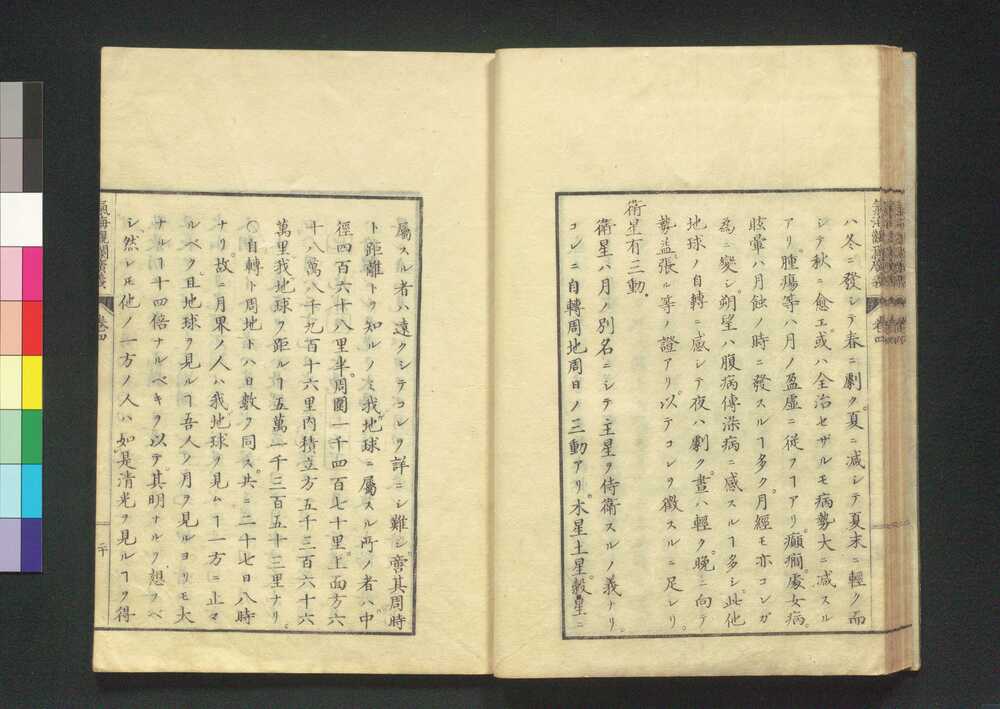 ハ冬ニ發シテ春ニ劇ク。夏ニ減シテ夏末ニ輕ク而
シテ秋ニ愈エ或ハ全治セザルモ病勢大ニ減スル
アリ。腫瘍等ハ月ノ盈虚ニ従フヿアリ。癲癇處女病。
眩暈ハ月蝕ノ時ニ發スルヿ多ク。月經モ亦コレガ
為ニ變シ。朔望ハ腹病傳染病ニ感スルヿ多シ。此他
地球ノ自轉ニ感シテ夜ハ劇ク。晝ハ輕ク。晩ニ向テ
勢益張ル等ノ證アリ。以テコレヲ徴スルニ足レリ。
衛星有三動。
衛星ハ月ノ別名ニシテ主星ヲ侍衛スルノ義ナリ。
コレニ自轉周地周日ノ三動アリ。木星土星。穀星ニ
屬スル者ハ遠クシテコレヲ詳ニシ難シ。啻其周時
ト距離トヲ知ルノミ。我地球ニ屬スル所ノ者ハ中
徑四百六十八里半。周圍一千四百七十里上面方六
十八萬八千九百十六里内積立方五千三百六十六
萬里。我地球ヲ距ルヿ五萬一千三百五十三里ナリ。
〇自轉ト周地トハ日數ヲ同ス。共ニ二十七日八時
ナリ。故ニ月界ノ人ハ我地球ヲ見ムヿ一方ニ止マ
ルベク。且地球ヲ見ルヿ吾人ノ月ヲ見ルヨリモ大
ナルヿ十四倍ナルベキヲ以テ。其明ナルヲ想フベ
シ。然レ𪜈他ノ一方ノ人ハ如是清光ヲ見ルヿヲ得
氣海觀瀾廣義
卷四
二十